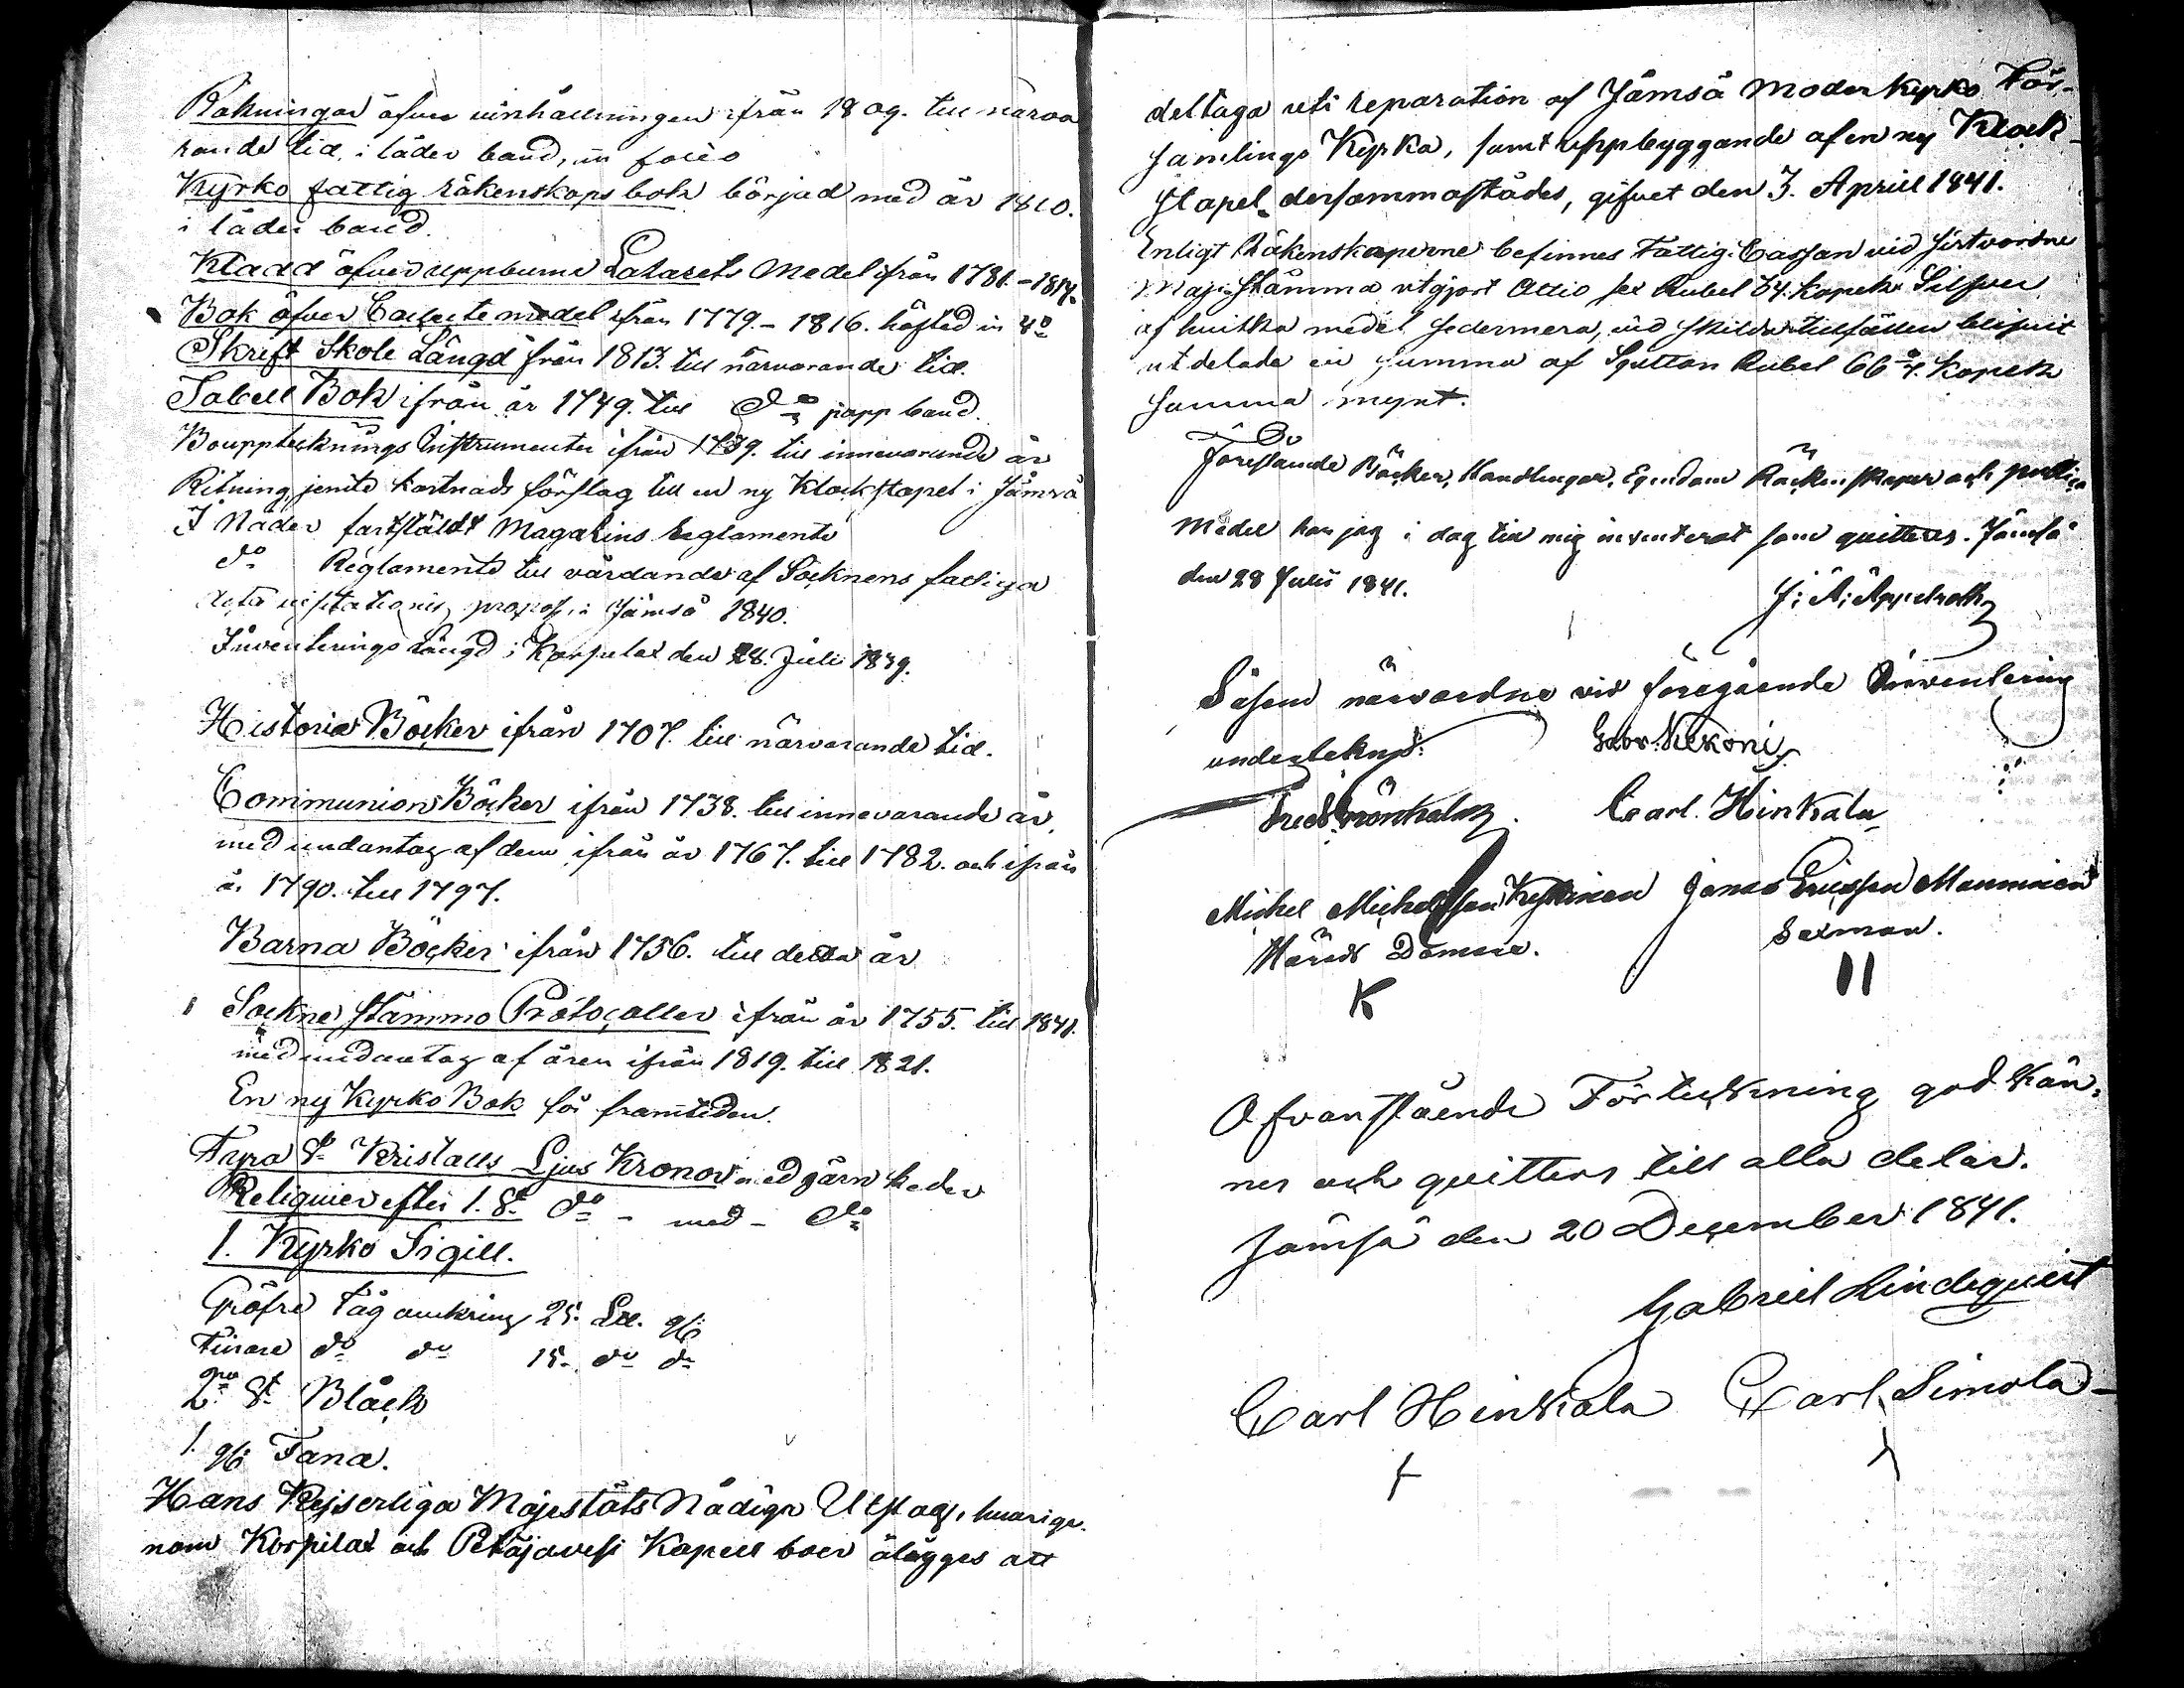 Räkningar öfver vinhållningen ifrån 1809. till närva
rande tid, i läder band, in folio
Kyrko fattig räkenskaps bok börjad med år 1810.
i läder band.
Kladd öfver uppburne Lazaretts Medel ifrån 1781.-1814.
Bok öfver Collecte medel ifrån 1779.-1816. häftad in 4o
Skrift Skole Längd från 1813. till närvarande tid.
Tabell Bok ifrån år 1749. till do papp band.
Bouppteknings Instrumenter ifrån 1739. till innevarande år
Ritning jemte kostnads förslag till en ny Klockstapel i Jämsä
I Nåder fastställdt Magazins Reglamente
do Reglamente till vårdande af Socknens fattiga
Acta visitationis, propos. i Jämsä 1840.
Inventerings Längd i Korpilax den 28. Juli 1839.
Historia Böcker ifrån 1707. till närvarande tid.
Communion Böcker ifrån 1738. till innevarande år,
med undantag af dem ifrån år 1767. till 1782. och ifrån
år 1790. till 1797.
Barna Böcker ifrån 1756. till detta år
Sockne stämmo Protocoller ifrån år 1755. till 1841.
med undantag af åren ifrån 1819. till 1821.
En ny Kyrko Bok för framtiden.
Fyra St Kristalls Ljus Kronor med järn kedor
Reliquier efter 1. St. do - med - do
1. Kyrko Sigill.
Gröfre Tåg omkring 25. L℔.
Finare do do 15. do do
2ne St. Block
1. Fana.
Hans Kejserliga Majestäts Nådiga Utslag, hvarige-
nom Korpilax och Petäjävesi Kapell boer ålägges att
deltaga uti reparation af Jämsä Moder Kyrko För-
samlings Kyrka, samt uppbyggande af en ny Klock-
stapel dersammastädes, gifvet den 3. Aprill 1841.
Enligt Räkenskaperne befinnes Fattig-Cassan vid sistvordne
Maji Stämma utgjort Ottio sex Rubel 34. kopek Silfver
af hvilka medel sedermera, vid skilda tillfällen blifvit
utdelade en summa af Sjutton Rubel 66 kopek
samma mynt.
Förestående Böcker, Handlingar, Egendom Räckenskaper och publica
Medel har jag i dag till mig inventerat som quitteras. Jämsä
den 28 Julii 1841.
J: A: Appelroth
Såsom närvardne vid föregående Inventering
undertekna: Gabr. Nikonis
Carl Hinkala
Michel Michelsson Jonas Ericsson Manninen
Härads Domare. Sexman.
K II
Ofvanstående Förteckning godkän-
nes och quitteras till alla delar.
Jämsä den 20 December 1841.
Gabriel Lindequist
Carl Hinkala Carl Simola